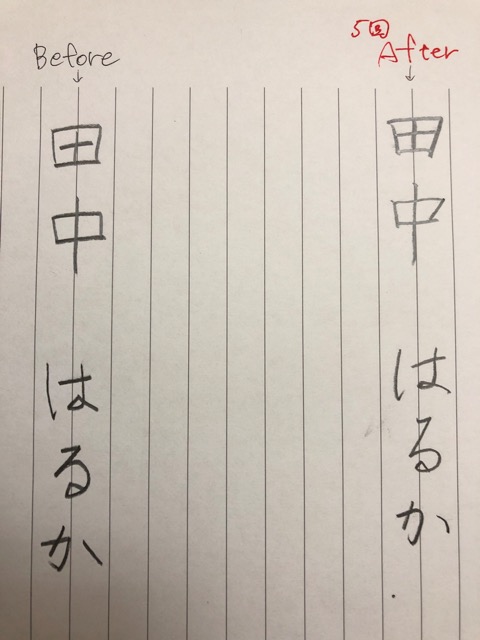 Before
↓
田中 はるか
5回
After
↓
田中 はるか